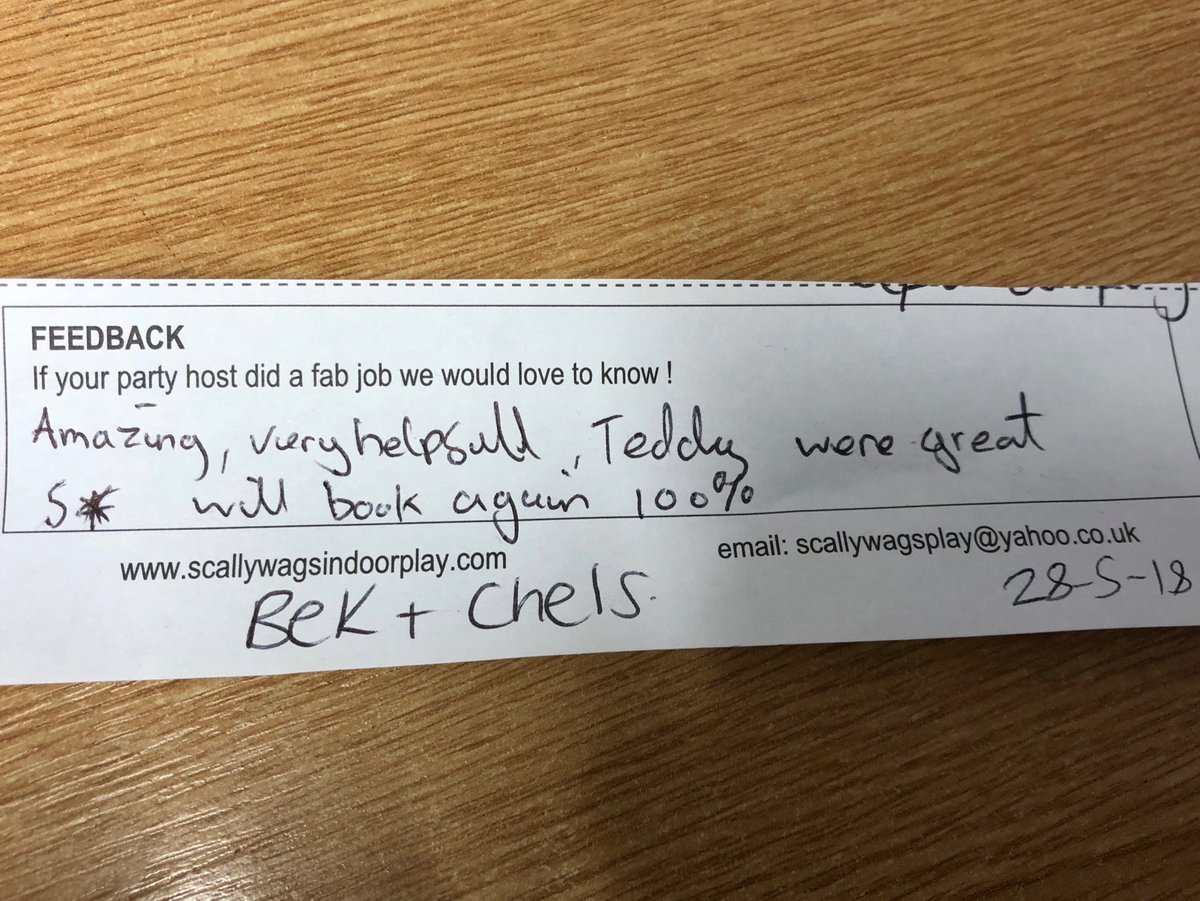 FEEDBACK
If your party host did a fab job we would love to know !
Amazing, very helpfull, Teddy were great
5* will book again 100%
www.scallywagsindoorplay.com
email: scallywagsplay@yahoo.co.uk
Bek + Chels.
28-5-18